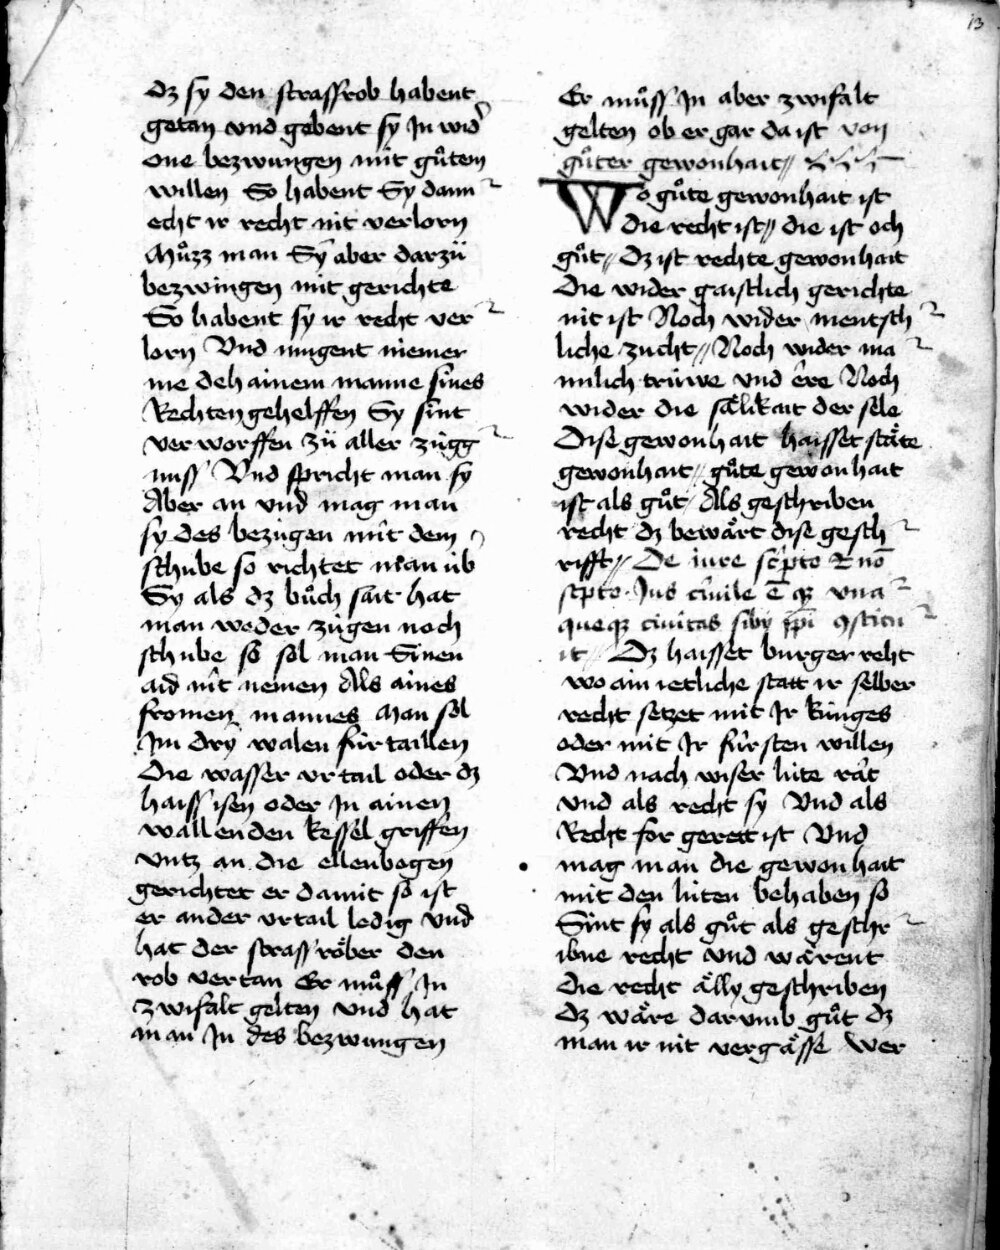 13
dz sy den strassrob habent
getan vnd gebent sy Jn wid̾
one bezwungen mit gůtem
willen So habent Sy dann
echt ir recht nit verlorn
Můzz man Sy aber darzü
bezwingen mit gerichte
So habent sy ir recht ver
lorn Vnd mugent niemer
me dehainem manne sines
Rechten gehelffen Sy sint
verworffen zü aller zügg
nuss Vnd spricht man sy
Aber an vnd mag man
sy des bezugen mit dem
schube so richtet man üb
Sy als dz bůch sait hat
man weder zügen noch
schube so sol man Sinen
aid nit nemen Als aines
fromen mannes Man sol
Jm dry walen für taillen
Die wasser vrtail oder dz
haiss isen oder Jn ainen
wallenden kessel griffen
vntz an die ellenbogen
gerichtet er damit so ist
er ander vrtail ledig Vnd
hat der strassröber den
rob vertan Er můss Jn
zwifalt gelten vnd hat
man Jn des bezwungen
Er můss Jn aber zwifalt
gelten ob er gar da ist von
gůter gewonhait
Wo gůte gewonhait ist
die recht ist// die ist och
gůt// dz ist rechte gewonhait
Die wider gaistlich gerichte
nit ist Noch wider mentsch
liche zucht// Noch wider ma
nnlich trüwe vnd ere Noch
wider die sälikait der sele
Dise gewonhait haisset stäte
gewonhait// gůte gewonhait
ist als gůt/ Als geschriben
recht dz bewärt dise gesch
rifft// De iure sc̾pto & nō
sc̾pto Jus ciuile ē qz vna
queqz ciuitas siby ꝓpi ꝯstitu
it// Dz haisset burger reht
wo ain ietliche statt ir selber
recht setzet mit Jr künges
oder mit Jr fürsten willen
Vnd nach wiser lüte rät
vnd als recht sy Vnd als
Recht for gerett ist Vnd
mag man die gewonhait
mit den lüten behaben so
Sint sy als gůt als geschr
ibne recht vnd wärent
Die recht älly geschriben
Dz wäre darumb gůt dz
man ir nit vergässe Wer